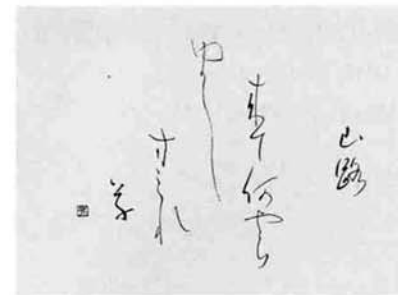 山路
来て何やら
ゆかし
すみれ
草